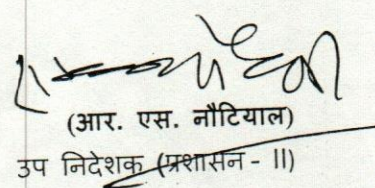 (आर. एस. नौटियाल)
उप निदेशक (प्रशासन - II)